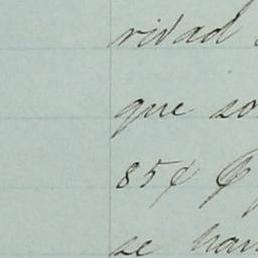 ridad
que so
85¢
se han